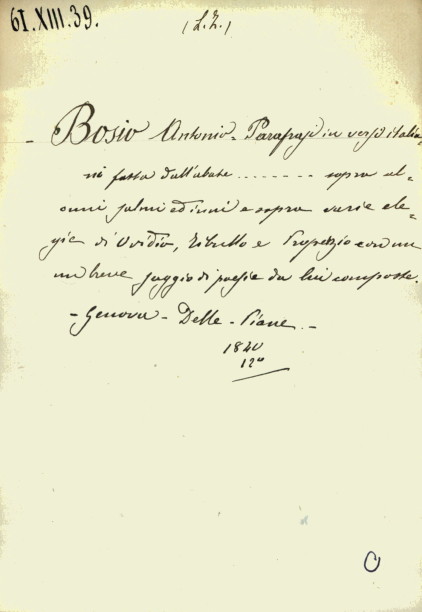 61.XIII.39.
(L.I.)
- Bosio Antonio = Parafrasi in versi italia-
ni fatta dall'abate ........ sopra al-
cuni salmi ed inni e sopra varie ele-
gie di Ovidio, Tibullo e Properzio con un
un breve saggio di poesie da lui composte.
- Genova - Delle - Piane -
1840
12º